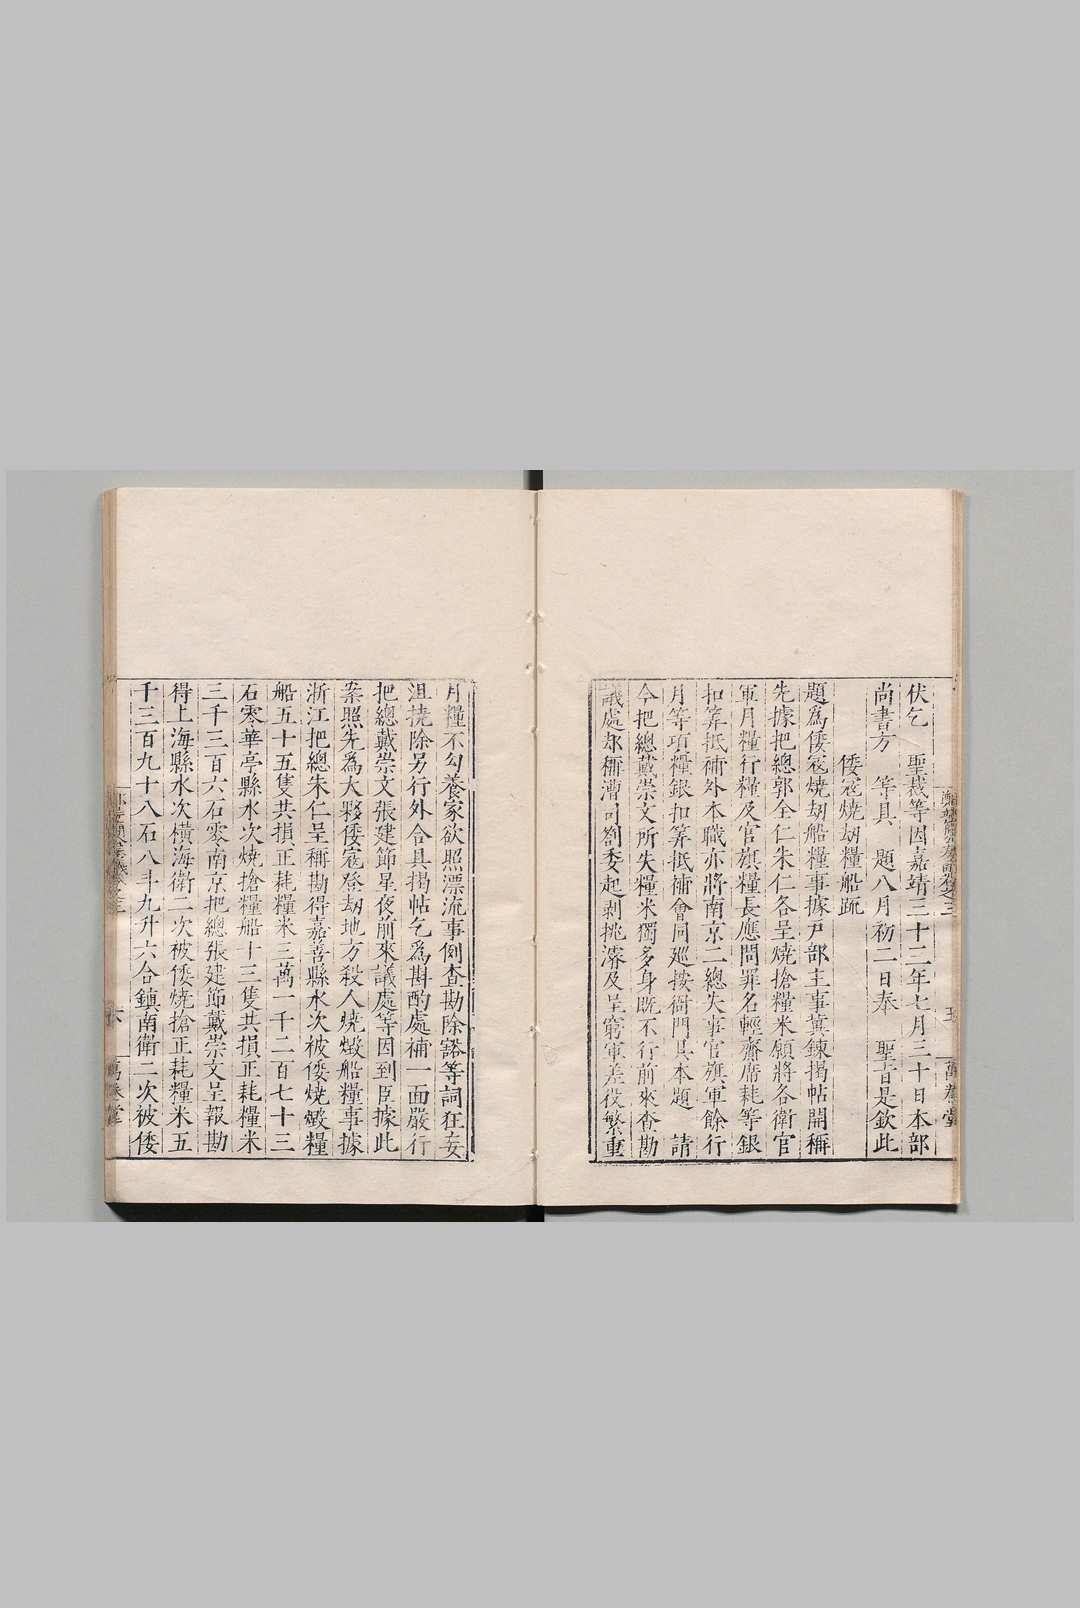 伏乞　聖裁等因嘉靖三十三年七月三十日本部
尚書方　等具　題八月初二日奉　聖旨是欽此
倭寇燒劫糧船疏
題爲倭寇燒劫船糧事據戶部主事冀鍊揭帖開稱
先據把總郭全仁朱仁各呈燒搶糧米願將各衛官
軍月糧行糧及官旗糧長應問罪名輕齎席耗等銀
扣筭抵補外本職亦將南京二總失事官旗軍餘行
月等項糧銀扣筭抵補會同廵按衙門具本題　請
今把總戴崇文所失糧米獨多身既不行前來查勘
議處却稱漕司劄委起剥挑濬及呈窮軍差役繁重
月糧不勾養家欲照漂流事例查勘除豁等詞狂妄
沮撓除另行外合具揭帖乞爲斟酌處補一面嚴行
把總戴崇文張建節星夜前來議處等因到臣據此
案照先爲大夥倭寇登劫地方殺人燒燬船糧事據
浙江把總朱仁呈稱勘得嘉善縣水次被倭燒燬糧
船五十五隻共損正耗糧米三萬一千二百七十三
石零華亭縣水次燒搶糧船十三隻共損正耗糧米
三千三百六石零南京把總張建節戴崇文呈報勘
得上海縣水次橫海衛二次被倭燒搶正耗糧米五
千三百九十八石八斗九升六合鎮南衛二次被倭